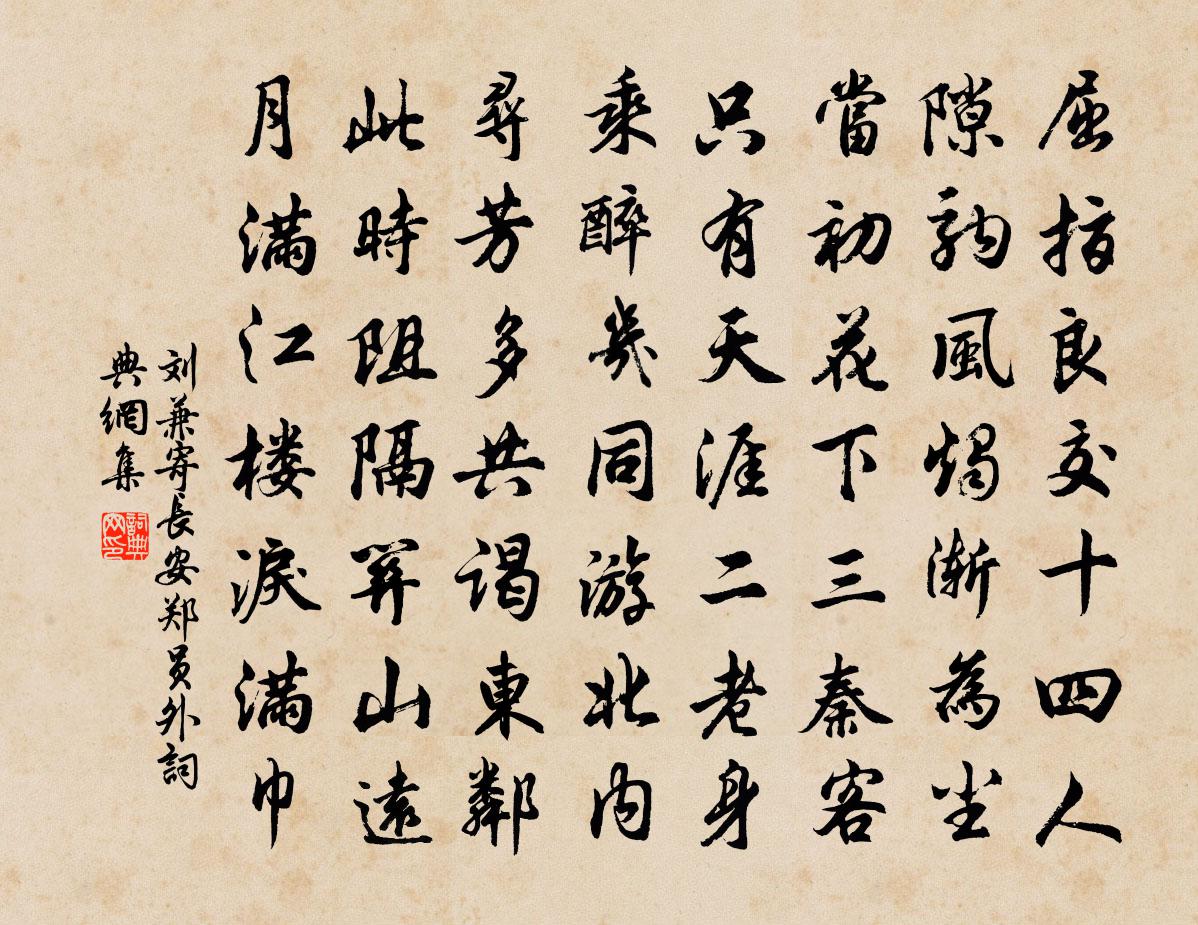 屈指良交十四人
隙駒風燭漸為塵
當初花下三秦客
只有天涯二老身
乘醉幾同游北內
尋芳多共謁東鄰
此時阻隔關山遠
月滿江楼淚滿巾
刘兼寄長安郑員外詞
典網集
詞典
网印